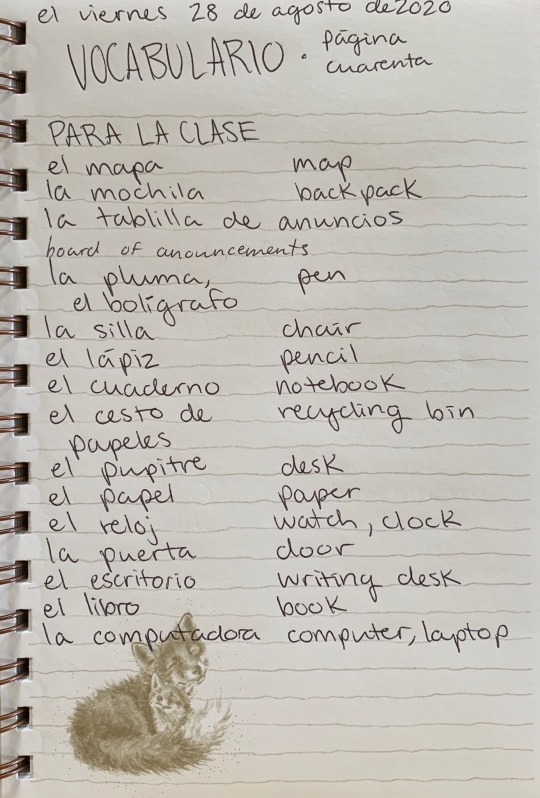 el viernes 28 de agosto de 2020
VOCABULARIO · página
cuarenta
PARA LA CLASE
el mapa map
la mochila backpack
la tablilla de anuncios
board of anouncements
la pluma, pen
el bolígrafo
la silla chair
el lápiz pencil
el cuaderno notebook
el cesto de recycling bin
papeles
el pupitre desk
el papel paper
el reloj watch, clock
la puerta door
el escritorio writing desk
el libro book
la computadora computer, laptop